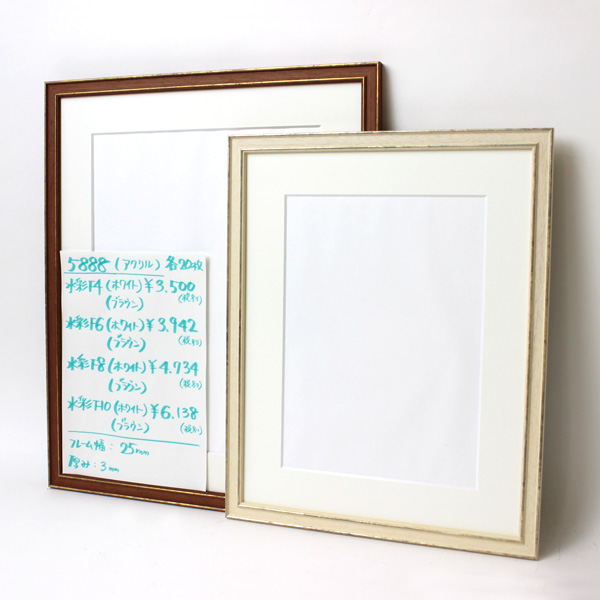 5888 (アクリル) 各20枚
水彩F4 (ホワイト) ¥3.500
(ブラウン) (税別)
水彩F6 (ホワイト) ¥3.942
(ブラウン) (税別)
水彩F8 (ホワイト) ¥4.734
(ブラウン) (税別)
水彩F10 (ホワイト) ¥6.138
(ブラウン) (税別)
フレーム幅: 25mm
厚み: 3mm